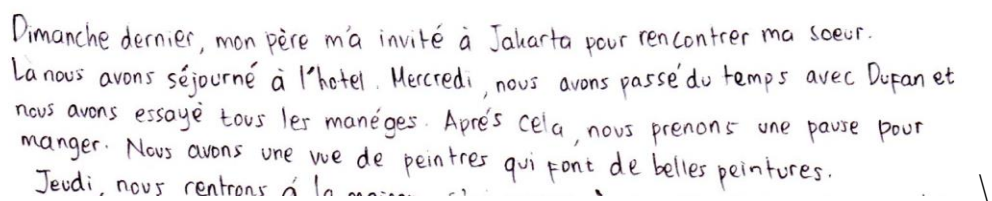 Dimanche dernier, mon père m'a invité à Jakarta pour rencontrer ma soeur.
Là nous avons séjourné à l'hotel. Mercredi, nous avons passé du temps avec Dufan et
nous avons essayé tous les manéges. Aprés cela, nous prenons une pause pour
manger. Nous avons une vue de peintres qui font de belles peintures.
Jeudi, nous rentrons á la